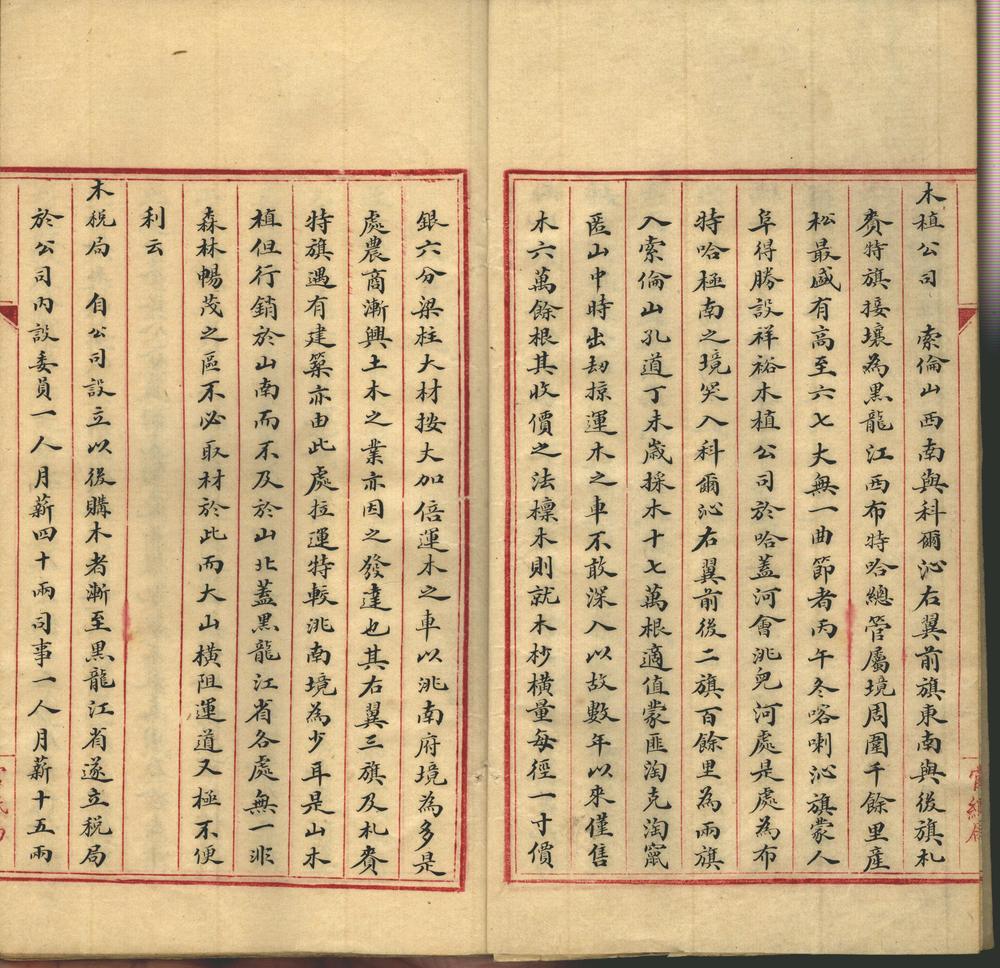 木植公司　索倫山西南與科爾沁右翼前旗東南與後旗札
賚特旗接壤為黑龍江西布特哈總管屬境周圍千餘里產
松最盛有高至六七大無一曲節者丙午冬喀喇沁旗蒙人
阜得勝設祥裕木植公司於哈蓋河會洮兒河處是處為布
特哈極南之境突入科爾沁右翼前後二旗百餘里為兩旗
入索倫山孔道丁未歲採木十七萬根適值蒙匪淘克淘竄
匿山中時出劫掠運木之車不敢深入以故數年以來僅售
木六萬餘根其收價之法檩木則就木杪橫量每徑一寸價
銀六分梁柱大材按大加倍運木之車以洮南府境為多是
處農商漸興土木之業亦因之發達也其右翼三旗及札賚
特旗遇有建築亦由此處拉運特較洮南境為少耳是山木
植但行銷於山南而不及於山北蓋黑龍江省各處無一非
森林暢茂之區不必取材於此而大山橫阻運道又極不便
利云
木稅局　自公司設立以後購木者漸至黑龍江省遂立稅局
於公司內設委員一人月薪四十兩司事一人月薪十五兩